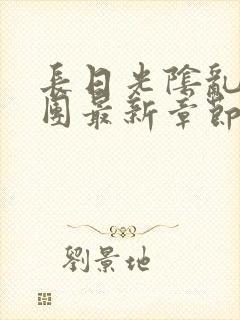 長日光陰亂
團最新章節
劉景地